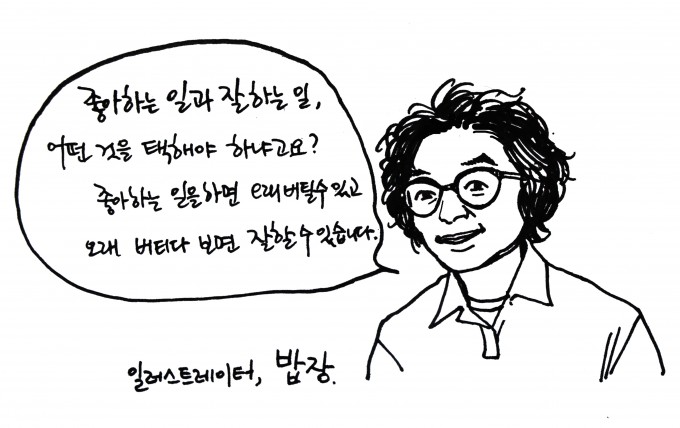 좋아하는 일과 잘하는 일,
어떤 것을 택해야 하냐고요?
좋아하는 일을하면 오래버틸수있고
오래 버티다 보면 잘할수있습니다.
일러스트레이터, 밥장.